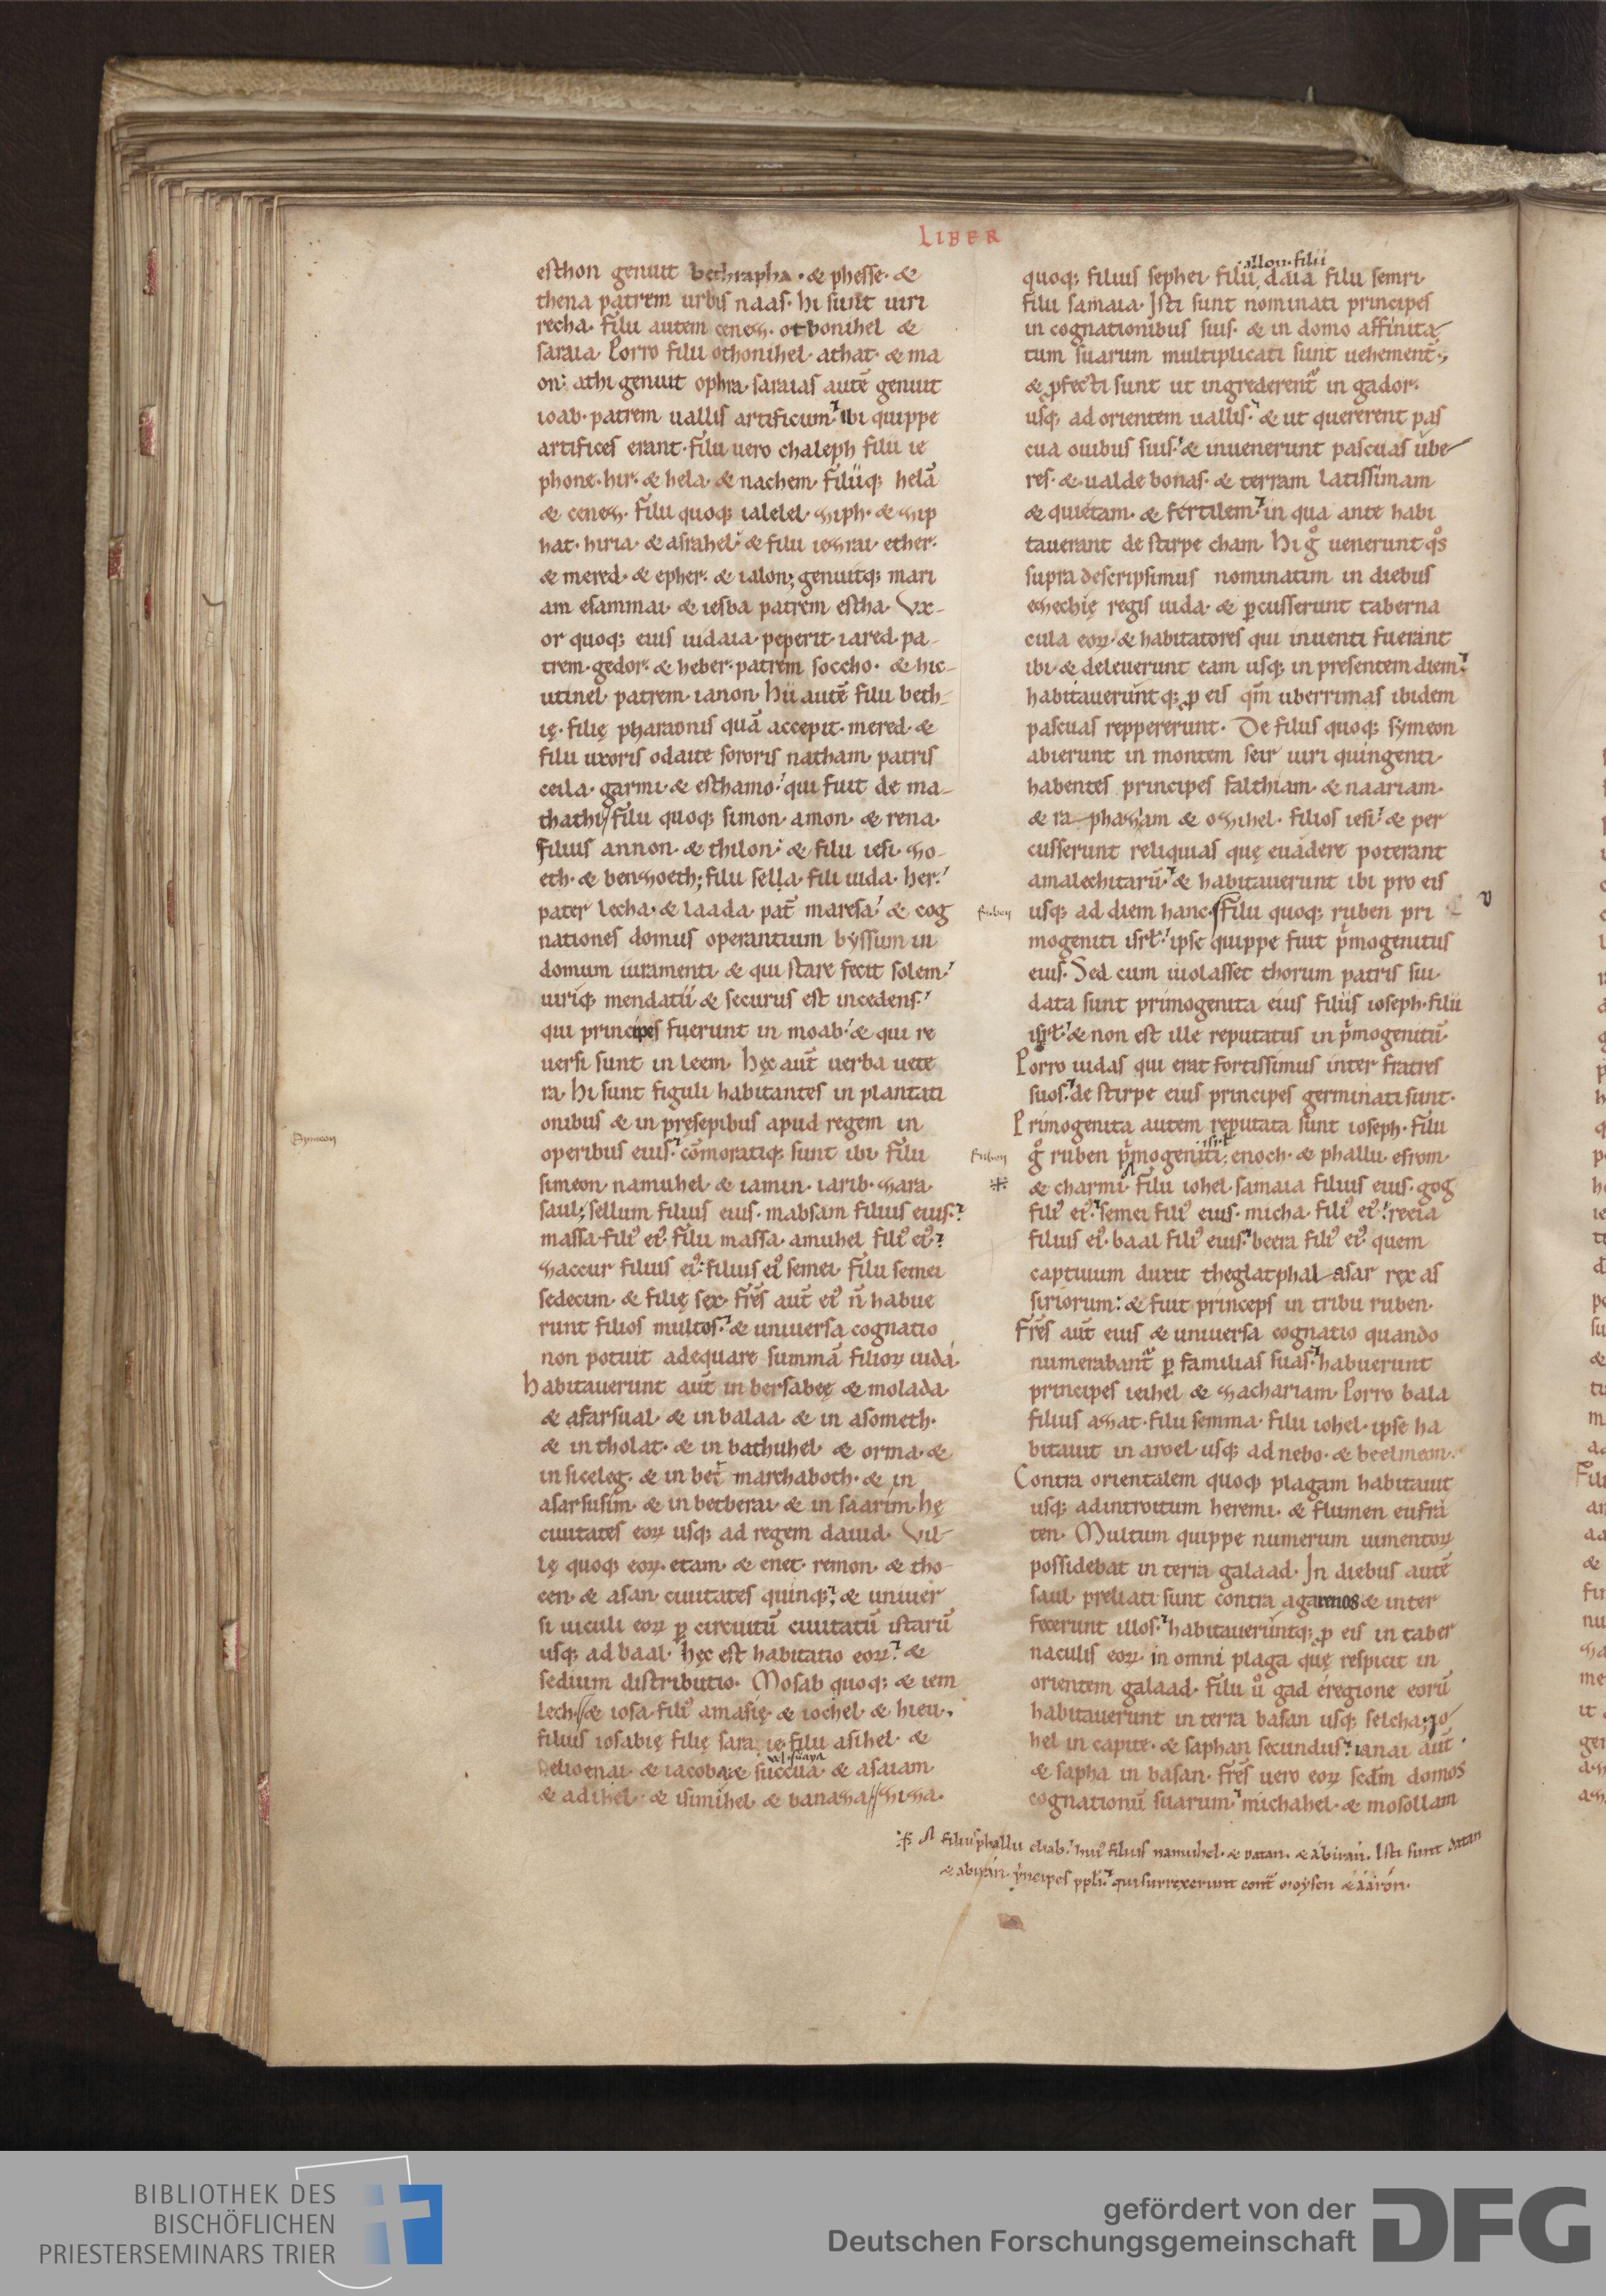 LIBER
esthon genuit bethrapha · & phesse · &
thena patrem urbis naas · hi sunt uiri
recha · filii autem cenez · othonihel &
saraia · Porro filii othonihel · athat · & ma
on · athi genuit ophra · saraias autē genuit
ioab · patrem uallis artificum · ibi quippe
artifices erant · filii uero chaleph filii ie
phone · hir · & hela · & nachem · filiiq; helā
& cenez · filii quoq; ialelel · ziph · & zip
hat · hiria · & asrahel · & filii iezrai · ether ·
& mered · & epher · & ialon; genuitq; mari
am esammai · & iesba patrem estha · Vx-
or quoq; eius iudaia · peperit · iared · pa-
trem · gedor · & heber · patrem soccho · & hic-
utinel · patrem · ianon · hii autē filii beth-
ię · filię pharaonis quā accepit · mered · &
filii uxoris odaite sororis natham · patris
ceila · garmi · & esthamo · qui fuit de ma-
thathi / filii quoq; simon · amon · & rena ·
filius annon · & thilon · & filii iesi · zo-
eth · & benzoeth; filii sella · filii iuda · her ·
pater lecha · & laada · pat̄ maresa · & cog
nationes domus operantium byssum in
domum iuramenti · & qui stare fecit solem ·
uiriq; mendatii & securus est incedens ·
qui principes fuerunt in moab · & qui re
uersi sunt in leem · hęc aut̄ uerba uete
ra · hi sunt figuli habitantes in plantati
onibus & in pręsepibus apud regem in
operibus eius · cōmoratiq; sunt ibi · filii
Symeon
simeon · namuhel · & iamin · iarib · zara ·
saul; sellum filius eius · mabsam filius eius ·
massa · fili' ei' · filii massa · amuhel fili' ei' ·
zaccur filius ei' · filius ei' semei · filii semei
sedecim · & filię sex · fr̄es aut̄ ei' n̄ habue
runt filios multos · & uniuersa cognatio
non potuit adequare summā filioꝝ iuda ·
habitauerunt aut̄ in bersabeę & molada ·
& afarsual · & in balaa · & in asometh ·
& in tholat · & in bathuhel · & orma · &
in siceleg · & in bet marchaboth · & in
asarsusim · & in betberai · & in saarim · hę
ciuitates eoꝝ usq; ad regem dauid · Vil-
lę quoq; eoꝝ · etam · & enet · remon · & tho-
cen · & asan · ciuitates quinq; · & uniuer
si uiculi eoꝝ ꝑ circuitū ciuitatū istarū
usq; ad baal · hęc est habitatio eoꝝ · &
sedium distributio · Mosab quoq; & iem
lech · / & iosa · fili' amasię · & iohel · & hieu ·
filius iosabię filię sara ię filii asihel · &
uel · suaya
helioenai · & iacoba · & succua · & asaiam
& adihel · & isimihel · & banaza // ziza ·
allon · filii
quoq; filius sephei · filii, daia filii semri ·
filii samaia · Isti sunt nominati principes
in cognationibus suis · & in domo affinita-
tum suarum multiplicati sunt uehement̄;
& ꝓfecti sunt ut ingrederent' in gador ·
usq; ad orientem uallis · & ut quererent pas
cua ouibus suis · & inuenerunt pascuas ube-
res · & ualde bonas · & terram latissimam
& quietam · & fertilem · in qua ante habi
tauerant de stirpe cham · hi g° uenerunt q°s
supra descripsimus nominatim in diebus
ezechię regis iuda · & ꝑcusserunt taberna
cula eoꝝ · & habitatores qui inuenti fuerant
ibi · & deleuerunt eam usq; in presentem diem ·
habitaueruntq; ꝓ eis qm̄ uberrimas ibidem
pascuas reppererunt · De filiis quoq; symeon
abierunt in montem seir uiri quingenti ·
habentes principes falthiam · & naariam ·
& ra-phaziam & ozihel · filios iesi · & per
cusserunt reliquias quę euadere poterant
amalechitarū · & habitauerunt ibi pro eis
Ruben
usq; ad diem hanc · / Filii quoq; ruben pri
v
mogeniti isrł · ipse quippe fuit p̄mogenitus
eius · Sed cum uiolasset thorum patris sui ·
data sunt primogenita eius filiis ioseph · filii
isrł · & non est ille reputatus in p̄mogenitū ·
Porro iudas qui erat fortissimus inter fratres
suos · de stirpe eius principes germinati sunt ·
Primogenita autem reputata sunt ioseph · Filii
isrł
Ruben
g° ruben p̄mogeniti, enoch · & phallu · esrom ·
& charmi · filii iohel · samaia filius eius · gog
fili' ei' · semei fili' eius · micha · fili' ei' · reeia
filius ei' · baal fili' eius · beera fili' ei' · quem
captiuum duxit theglatphal-asar rex as
siriorum · & fuit princeps in tribu ruben ·
Fr̄es aut̄ eius & uniuersa cognatio quando
numerabant' ꝑ familias suas · habuerunt
principes ieihel & zachariam · Porro bala
filius azat · filii semma · filii iohel · ipse ha
bitauit in aroel usq; ad nebo · & beelmeon ·
Contra orientalem quoq; plagam habitauit
usq; ad introitum heremi · & flumen eufra
ten · Multum quippe numerum iumentoꝝ
possidebat in terra galaad · In diebus autē
saul · preliati sunt contra agarenos & inter
fecerunt illos · habitaueruntq; ꝓ eis in taber
naculis eoꝝ · in omni plaga quę respicit in
orientem galaad · filii u° gad e regione eorū
habitauerunt in terra basan usq; selcha; io-
hel in capite · & saphan secundus · ianai aut̄ ·
& sapha in basan · fr̄es uero eoꝝ sedm̄ domos
cognationū suarum · michahel · & mosollam
filius phallu eliab · hui' filius namuhel · & datan · & abiran · Isti sunt datan
& abiran · p̄ncipes ppli · qui surrexerunt cont̄ moysen & aaron ·
BIBLIOTHEK DES
BISCHÖFLICHEN
PRIESTERSEMINARS TRIER
gefördert von der
Deutschen Forschungsgemeinschaft
DFG